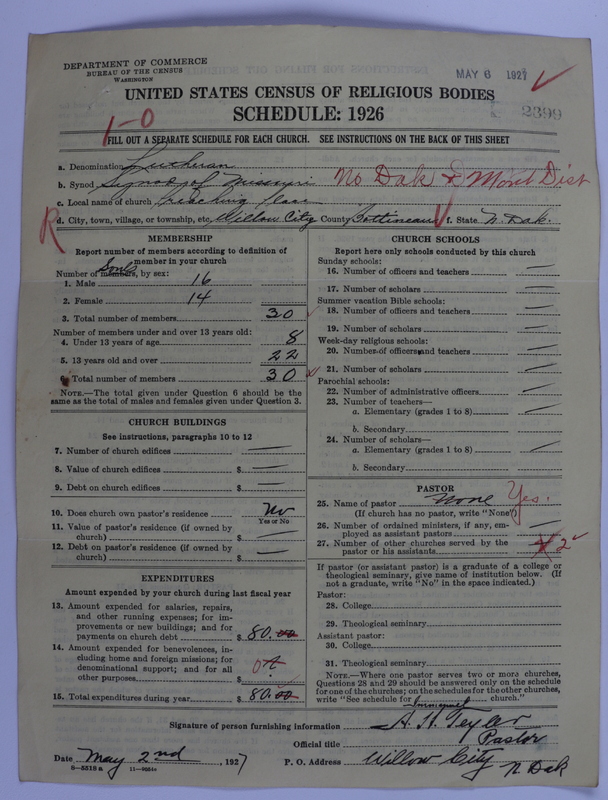 DEPARTMENT OF COMMERCE
BUREAU OF THE CENSUS
WASHINGTON
MAY 6 1927
UNITED STATES CENSUS OF RELIGIOUS BODIES
SCHEDULE: 1926
2399
1-0
FILL OUT A SEPARATE SCHEDULE FOR EACH CHURCH. SEE INSTRUCTIONS ON THE BACK OF THIS SHEET
a. Denomination Lutheran
b. Synod Synod of Missouri No Dak & Mont Dist
c. Local name of church Preaching Place
d. City, town, village, or township, etc. Willow City County Bottineau f. State N. Dak.
R
MEMBERSHIP
Report number of members according to definition of member in your church
Souls
Number of members, by sex:
1. Male 16
2. Female 14
3. Total number of members 30
Number of members under and over 13 years old:
4. Under 13 years of age 8
5. 13 years old and over 22
6. Total number of members 30
NOTE.—The total given under Question 6 should be the same as the total of males and females given under Question 3.
CHURCH BUILDINGS
See instructions, paragraphs 10 to 12
7. Number of church edifices —
8. Value of church edifices $ —
9. Debt on church edifices $ —
10. Does church own pastor's residence No
Yes or No
11. Value of pastor's residence (if owned by church) $ —
12. Debt on pastor's residence (if owned by church) $ —
EXPENDITURES
Amount expended by your church during last fiscal year
13. Amount expended for salaries, repairs, and other running expenses; for improvements or new buildings; and for payments on church debt $ 80.00
14. Amount expended for benevolences, including home and foreign missions; for denominational support; and for all other purposes $
15. Total expenditures during year $ 80.00
CHURCH SCHOOLS
Report here only schools conducted by this church
Sunday schools:
16. Number of officers and teachers —
17. Number of scholars —
Summer vacation Bible schools:
18. Number of officers and teachers —
19. Number of scholars —
Week-day religious schools:
20. Number of officers and teachers —
21. Number of scholars —
Parochial schools:
22. Number of administrative officers —
23. Number of teachers—
a. Elementary (grades 1 to 8) —
b. Secondary
24. Number of scholars—
a. Elementary (grades 1 to 8) —
b. Secondary
PASTOR
25. Name of pastor None Yes.
(If church has no pastor, write "None")
26. Number of ordained ministers, if any, employed as assistant pastors —
27. Number of other churches served by the pastor or his assistants 2
If pastor (or assistant pastor) is a graduate of a college or theological seminary, give name of institution below. (If not a graduate, write "No" in the space indicated.)
Pastor:
28. College
29. Theological seminary
Assistant pastor:
30. College
31. Theological seminary
NOTE.—Where one pastor serves two or more churches, Questions 28 and 29 should be answered only on the schedule for one of the churches; on the schedules for the other churches, write "See schedule for Immanuel church."
Signature of person furnishing information A. H. Teyler
Official title Pastor
Date May 2nd, 1927 P. O. Address Willow City N Dak
8-5518 a 11-9024